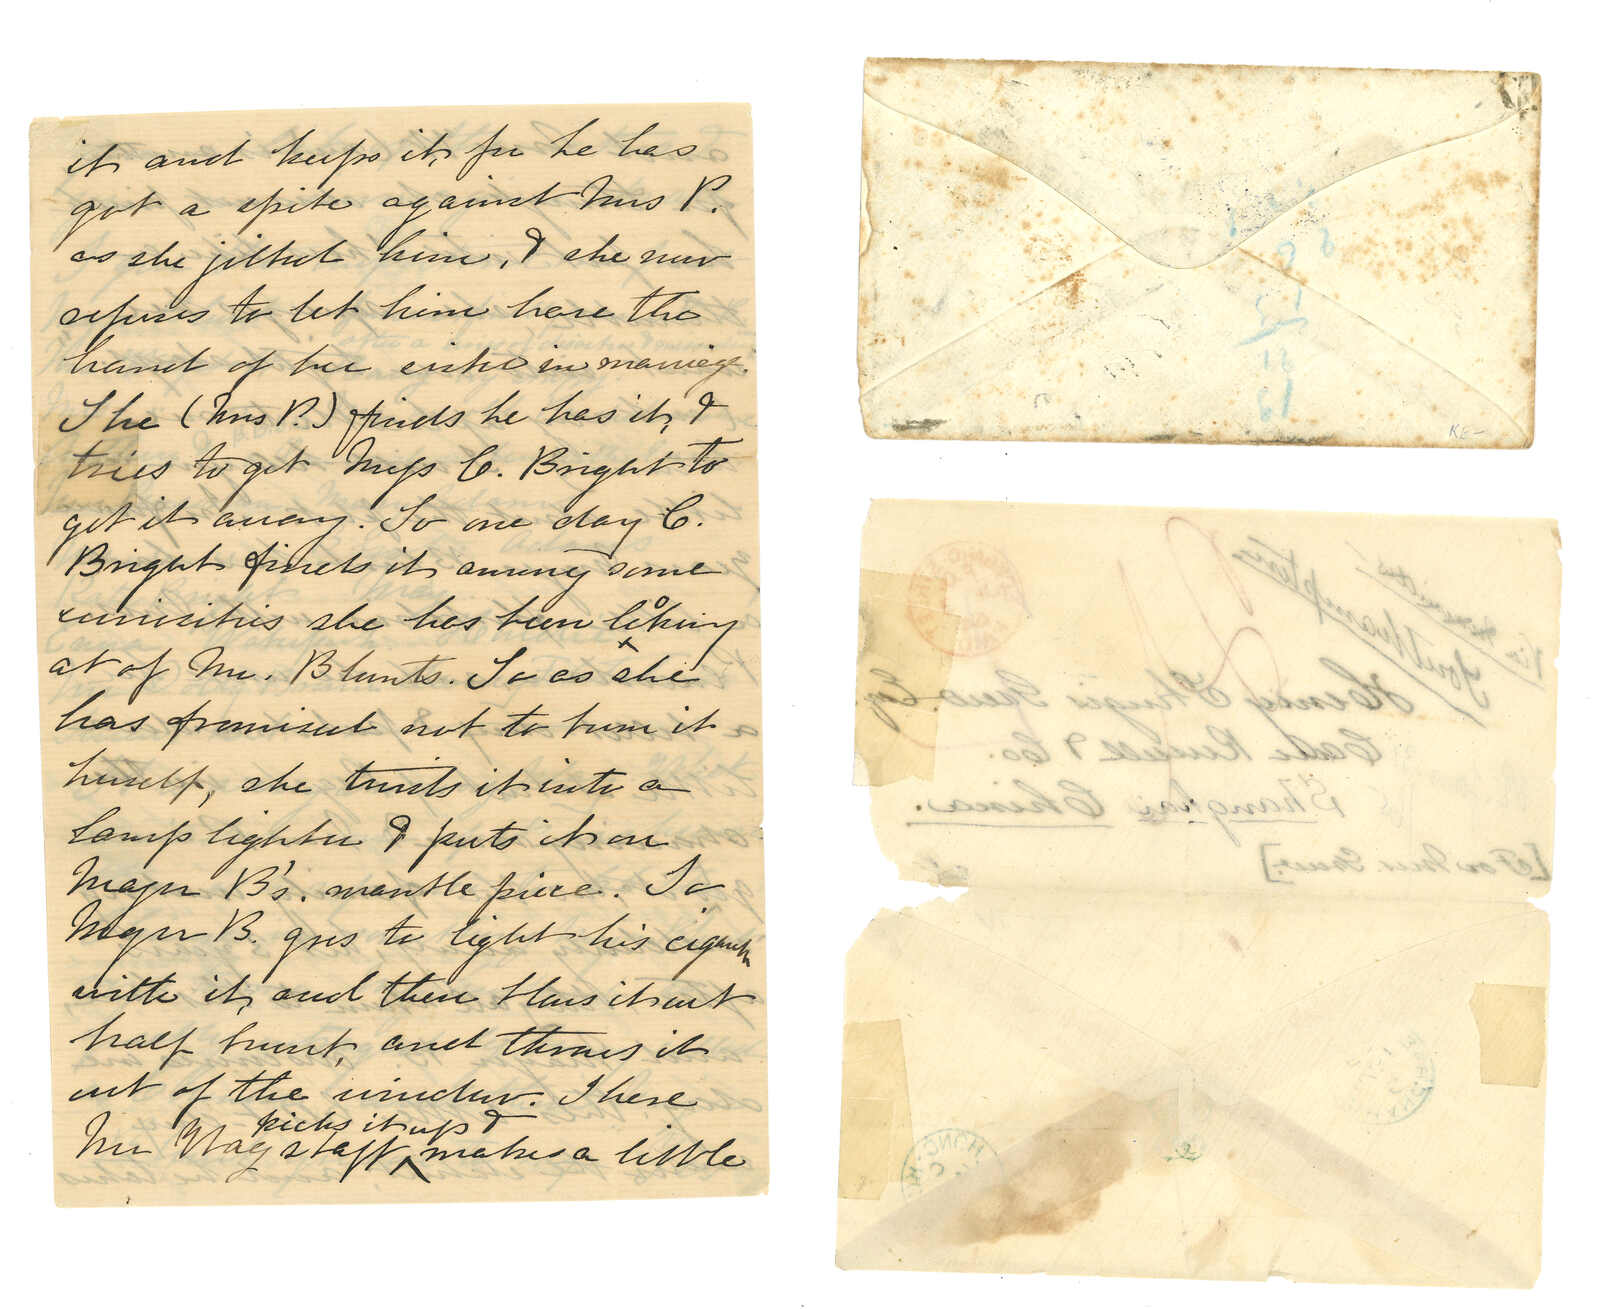 it and keeps it, for he has
got a spite against Mrs P.
as she jilted him, & she now
refuses to let him have the
hand of her sister in marriage.
She (Mrs P.) finds he has it, &
tries to get Miss C. Bright to
get it away. So one day C.
Bright finds it among some
curiosities she has been loking
o
at of Mr. Blunts. So as she
has promised not to burn it
herself, she twists it into a
lamp lighter & puts it on
Major B's. mantle piece. So
Major B. goes to light his cigar
with it, and then blows it out
half burnt, and throws it
out of the window. Here
picks it up &
Mr Wagstaff makes a little
KE-
via
Southampton
Henry Grew Esq.
Care Russell & Co.
Shanghai China.
[For Mrs. Grew.]
HONG